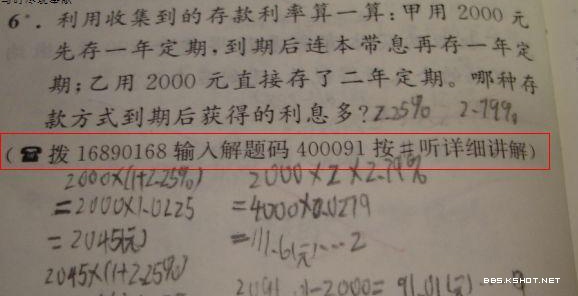 6*. 利用收集到的存款利率算一算:甲用 2000 元
先存一年定期,到期后连本带息再存一年定
期;乙用 2000 元直接存了二年定期。哪种存
款方式到期后获得的利息多?2.25% 2.79%
(☎ 拨 16890168 输入解题码 400091 按#听详细讲解)
2000×(1+2.25%) 2000×2×2.79%
=2000×1.0225 =4000×0.0279
=2045(元) =111.6(元)…2
2045×(1+2.25%) 2091. -2000=91.01(元)
BBS.KSHOT.NET